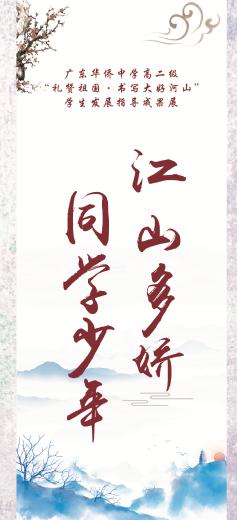 广东华侨中学高二级
“礼赞祖国·书写大好河山”
学生发展指导成果展
江山多娇
同学少年